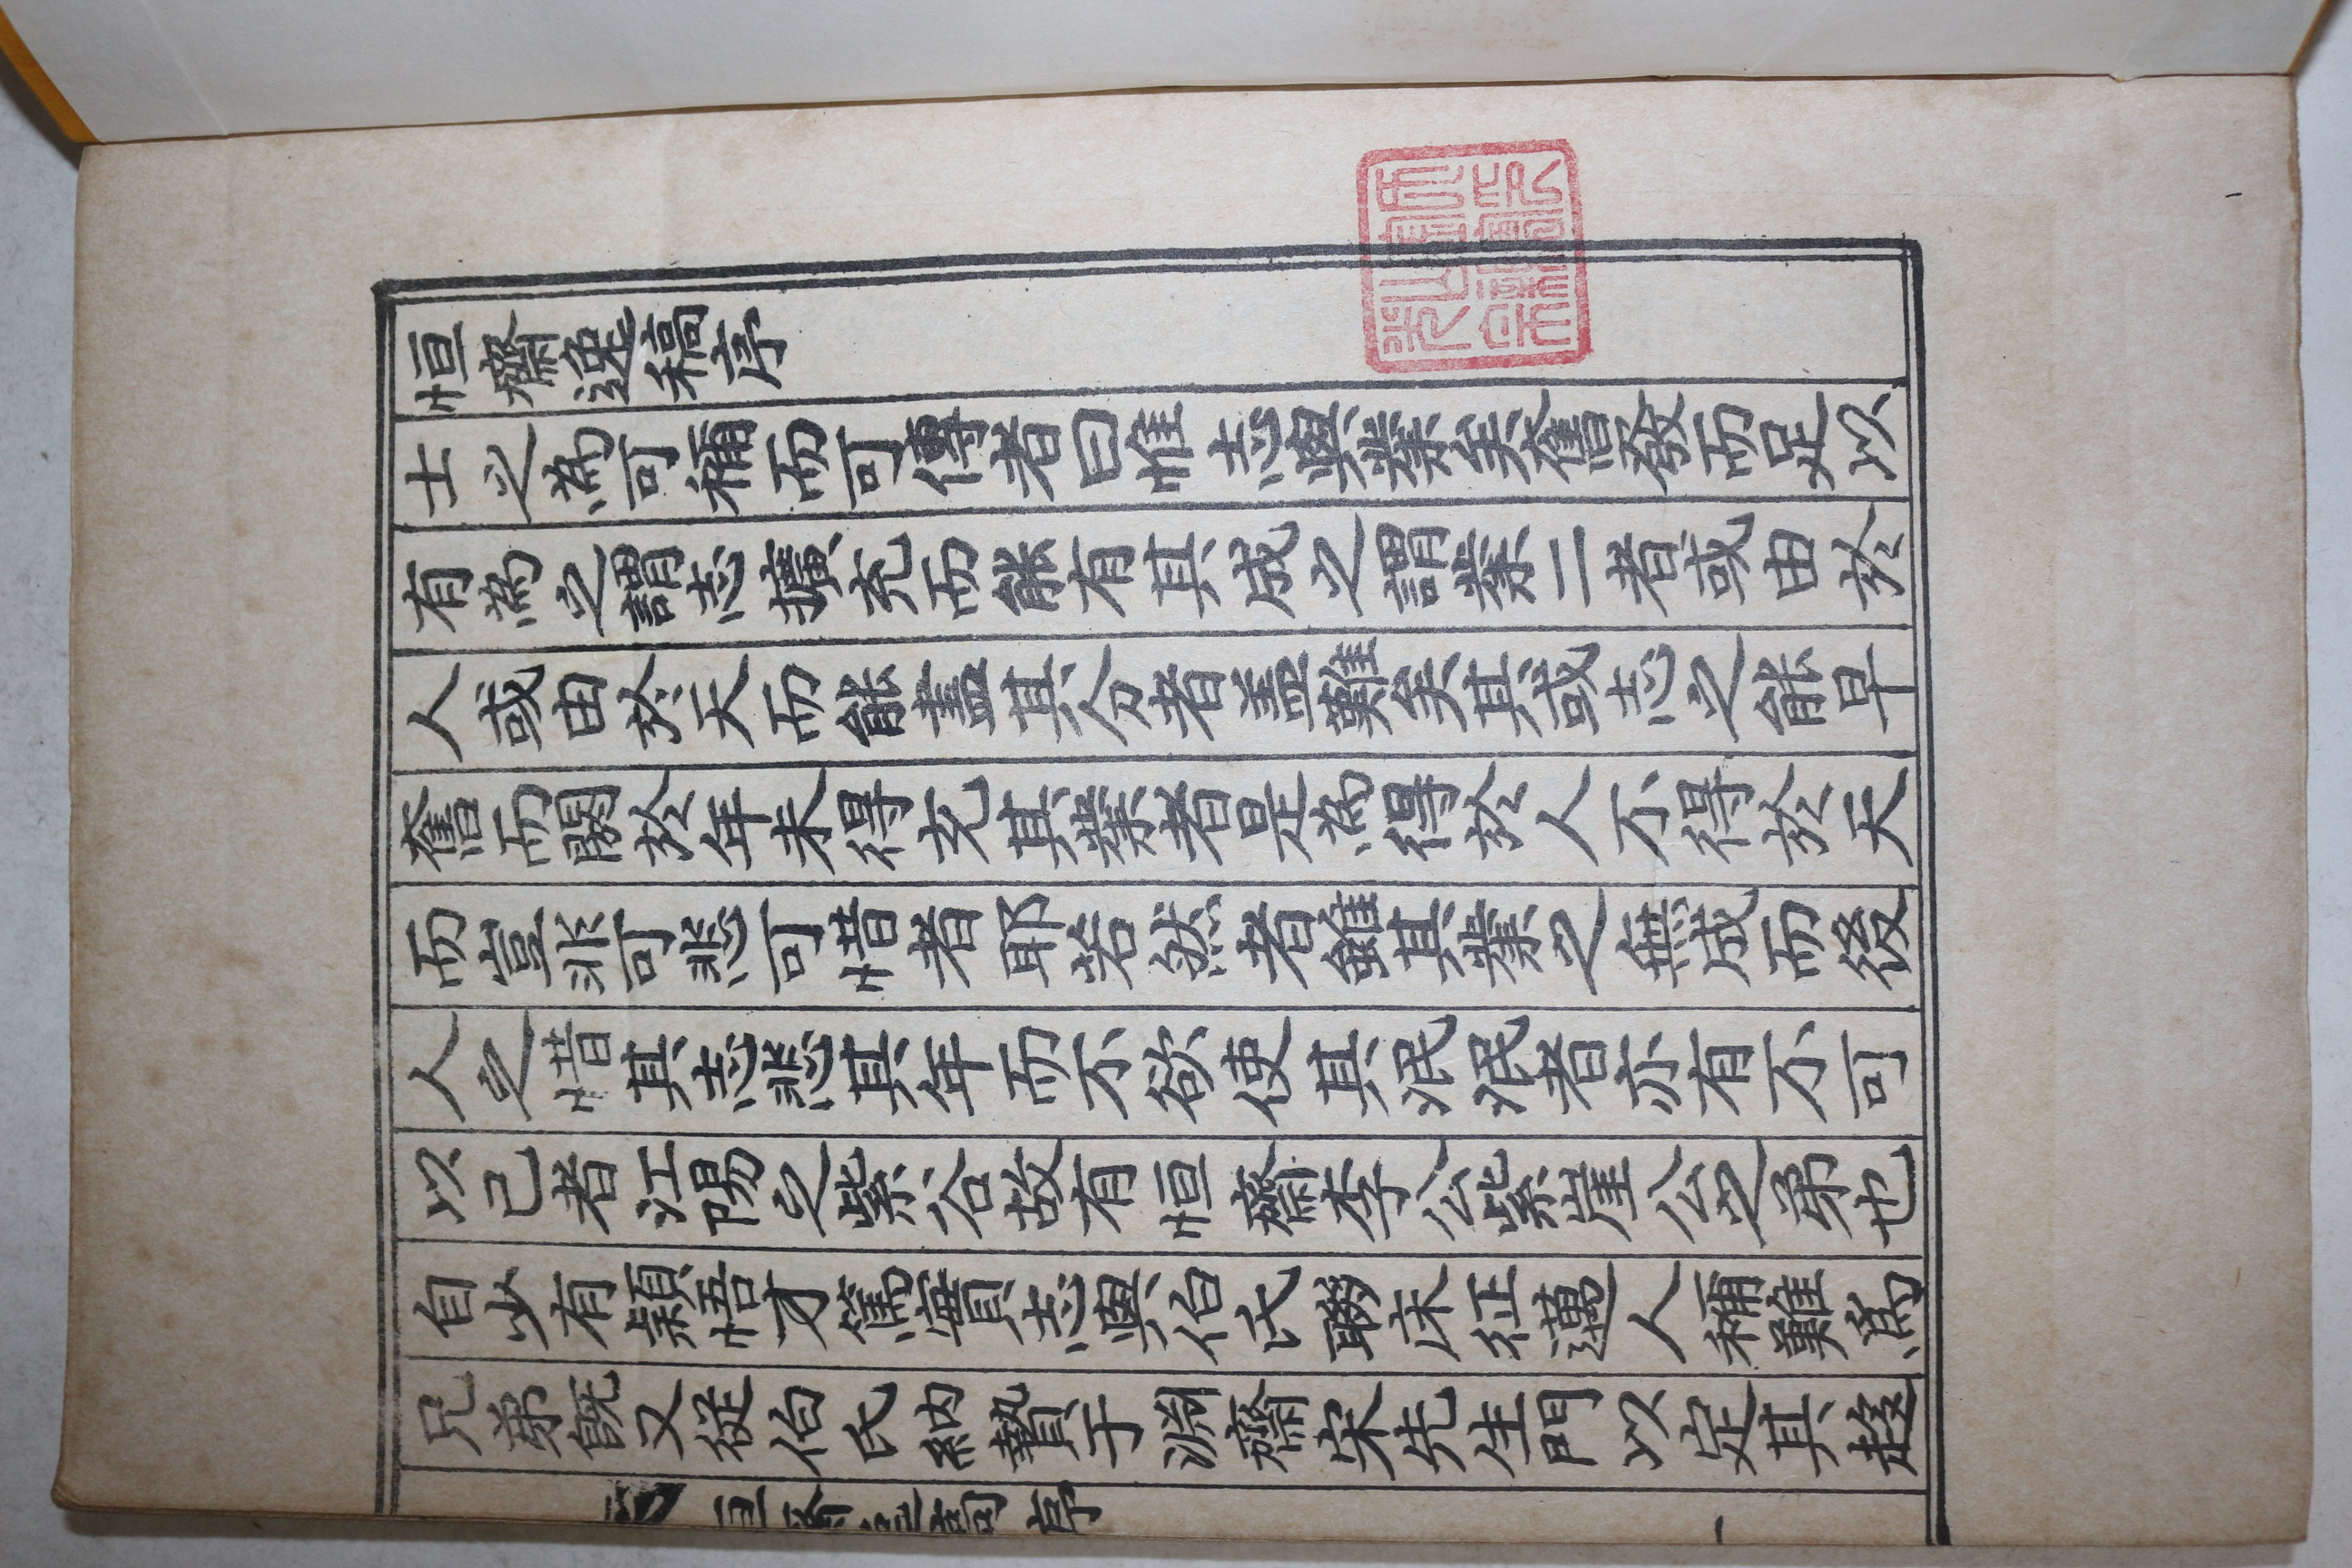 恒齋逸稿序
士之為可稱而可傳者曰惟志與業矣奮發而足以
有為之謂志擴充而能有其成之謂業二者或由於
人或由於天而能盡其分者盖難矣其或志之能早
奮而閼於年未得充其業者是為得於人不得於天
而豈非可悲可惜者耶若然者雖其業之無成而後
人之惜其志悲其年而不欲使其泯泯者亦有不可
以已者江陽之紫谷故有恒齋李公紫崖公之弟也
自少有穎悟才篤實志與伯氏聯床征邁人稱難爲
兄弟旣又從伯氏納贄于淵齋宋先生門以定其趍
恒齋逸稿序
一